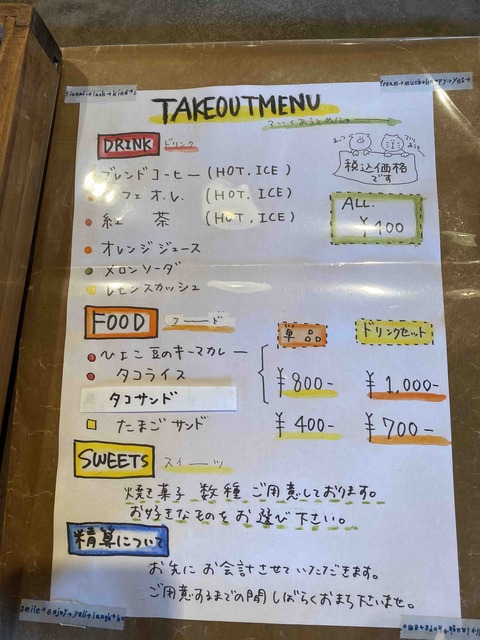 tional→lush→kind→c
dream→much→happy→yes→
TAKEOUTMENU
ていくあうとめにゅー
DRINK ドリンク
税込価格
です
ブレンドコーヒー (HOT. ICE)
カフェオ.レ. (HOT. ICE)
紅 茶 (HOT. ICE)
ALL.
¥400
オレンジジュース
メロンソーダ
レモンスカッシュ
FOOD フード
単品 ドリンクセット
ひよこ豆のキーマカレー
タコライス
¥800- ¥1,000-
タコサンド
たまごサンド ¥400- ¥700-
SWEETS スイーツ
焼き菓子 数種 ご用意しております。
お好きなものをお選び下さい。
精算について
お先にお会計させていただきます。
ご用意するまでの間しばらくおまち下さいませ。
smile→enjoy→yell→laugh→h